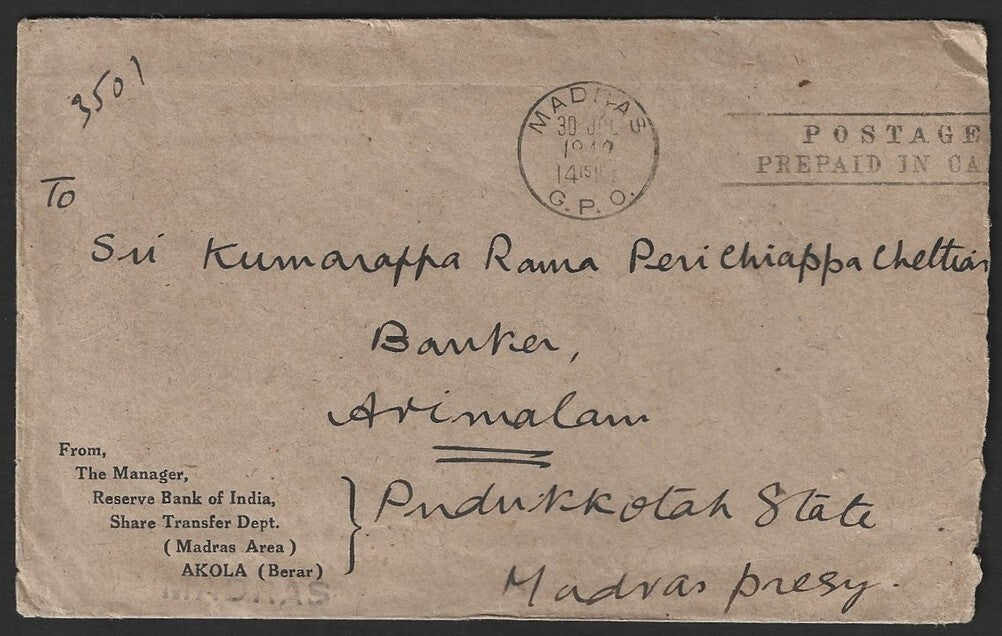 3501
MADRAS
30 JUL
14 15
G. P. O.
POSTAGE
PREPAID IN CA
To
Sri Kumarappa Rama Perichiappa Chettiar
Banker,
Arimalam
Pudukkotah State
Madras presy.
From,
The Manager,
Reserve Bank of India,
Share Transfer Dept.
( Madras Area )
AKOLA (Berar)
MADRAS